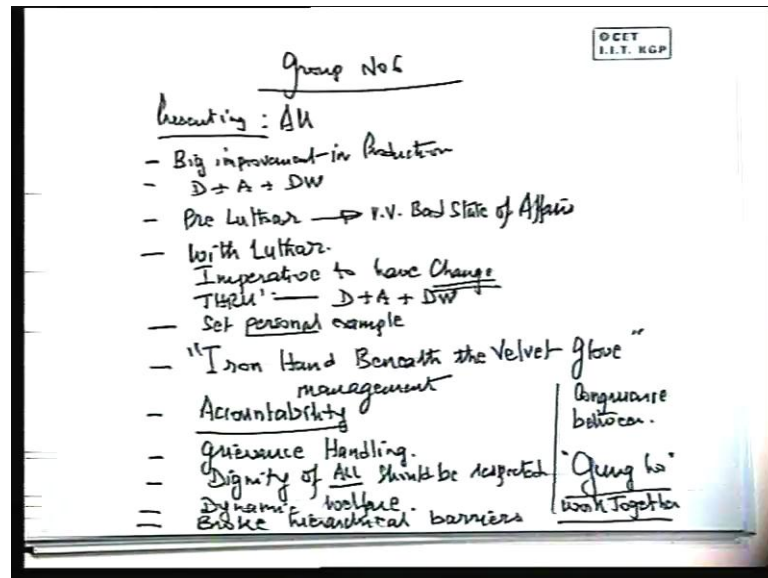 © CET
I.I.T. KGP
Group No 6
Presenting : All
- Big improvement in Production
- D + A + DW
- Pre Luthar → V.V. Bad State of Affairs
- With Luthar.
Imperative to have Change
THRU' — D + A + DW
- Set personal example
- "Iron Hand Beneath the Velvet glove"
management
- Accountability
- Grievance Handling.
- Dignity of ALL should be respected
- Dynamic welfare.
- Broke hierarchical barriers
Congruence
between.
"Gung ho"
Work Together